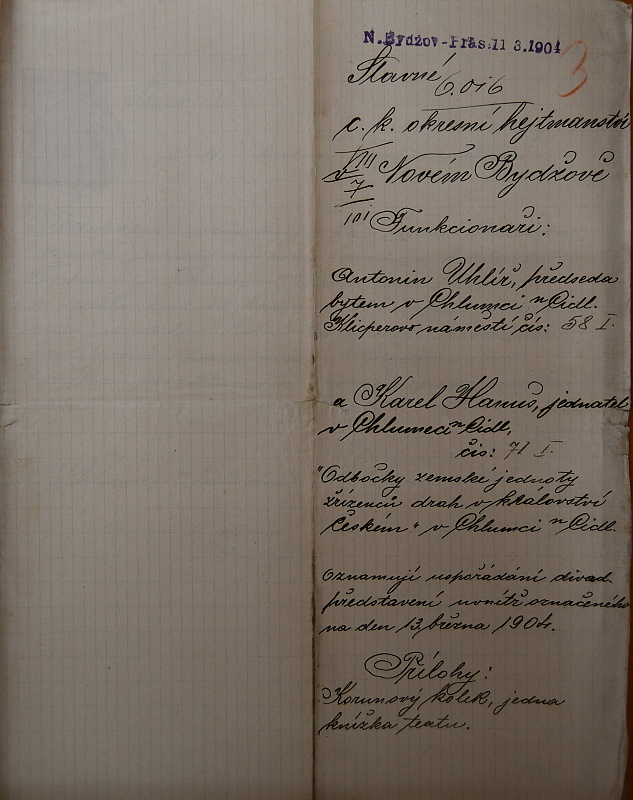 N. Bydžov-Präs. 11 3. 1904
3
Slavné
6.016
c. k. okresní hejtmanství
v Novém Bydžově
VIII
7
101
Funkcionáři:
Antonin Uhlíř, předseda
bytem v Chlumci n Cidl.
Klicperovo náměstí čís: 58 I.
a Karel Hanuš, jednatel
v Chlumci n Cidl,
čís: 71 I.
"Odbočky zemské jednoty
zřízenců drah v království
českém" v Chlumci n Cidl.
Oznamují uspořádání divad.
představení uvnitř označeného
na den 13. března 1904.
Přílohy:
Korunový kolek, jedna
knížka teatu.